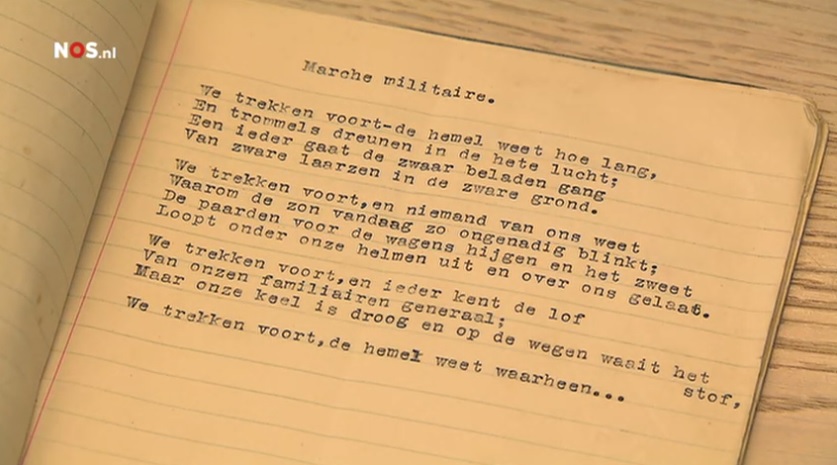 NOS.nl
Marche militaire.
We trekken voort-de hemel weet hoe lang,
En trommels dreunen in de hete lucht;
Een ieder gaat de zwaar beladen gang
Van zware laarzen in de zware grond.
We trekken voort,en niemand van ons weet
Waarom de zon vandaag zo ongenadig blinkt;
De paarden voor de wagens hijgen en het zweet
Loopt onder onze helmen uit en over ons gelaat.
We trekken voort,en ieder kent de lof
Van onzen familiairen generaal;
Maar onze keel is droog en op de wegen waait het
stof,
We trekken voort,de hemel weet waarheen...